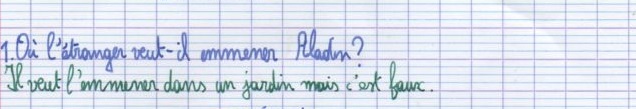 1. Où l'étranger veut-il emmener Aladin?
Il veut l'emmener dans un jardin mais c'est faux.